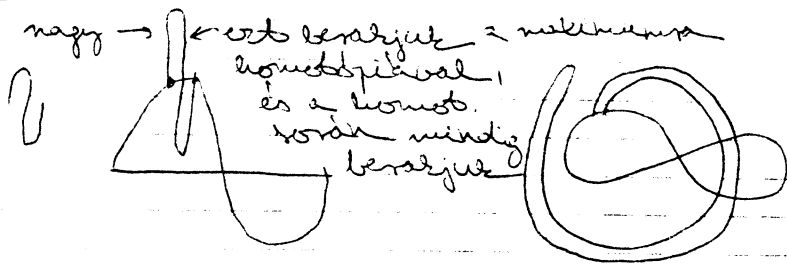 nagy → ← ezt berakjuk a maximumra
homotópiával,
és a homot.
során mindig
berakjuk